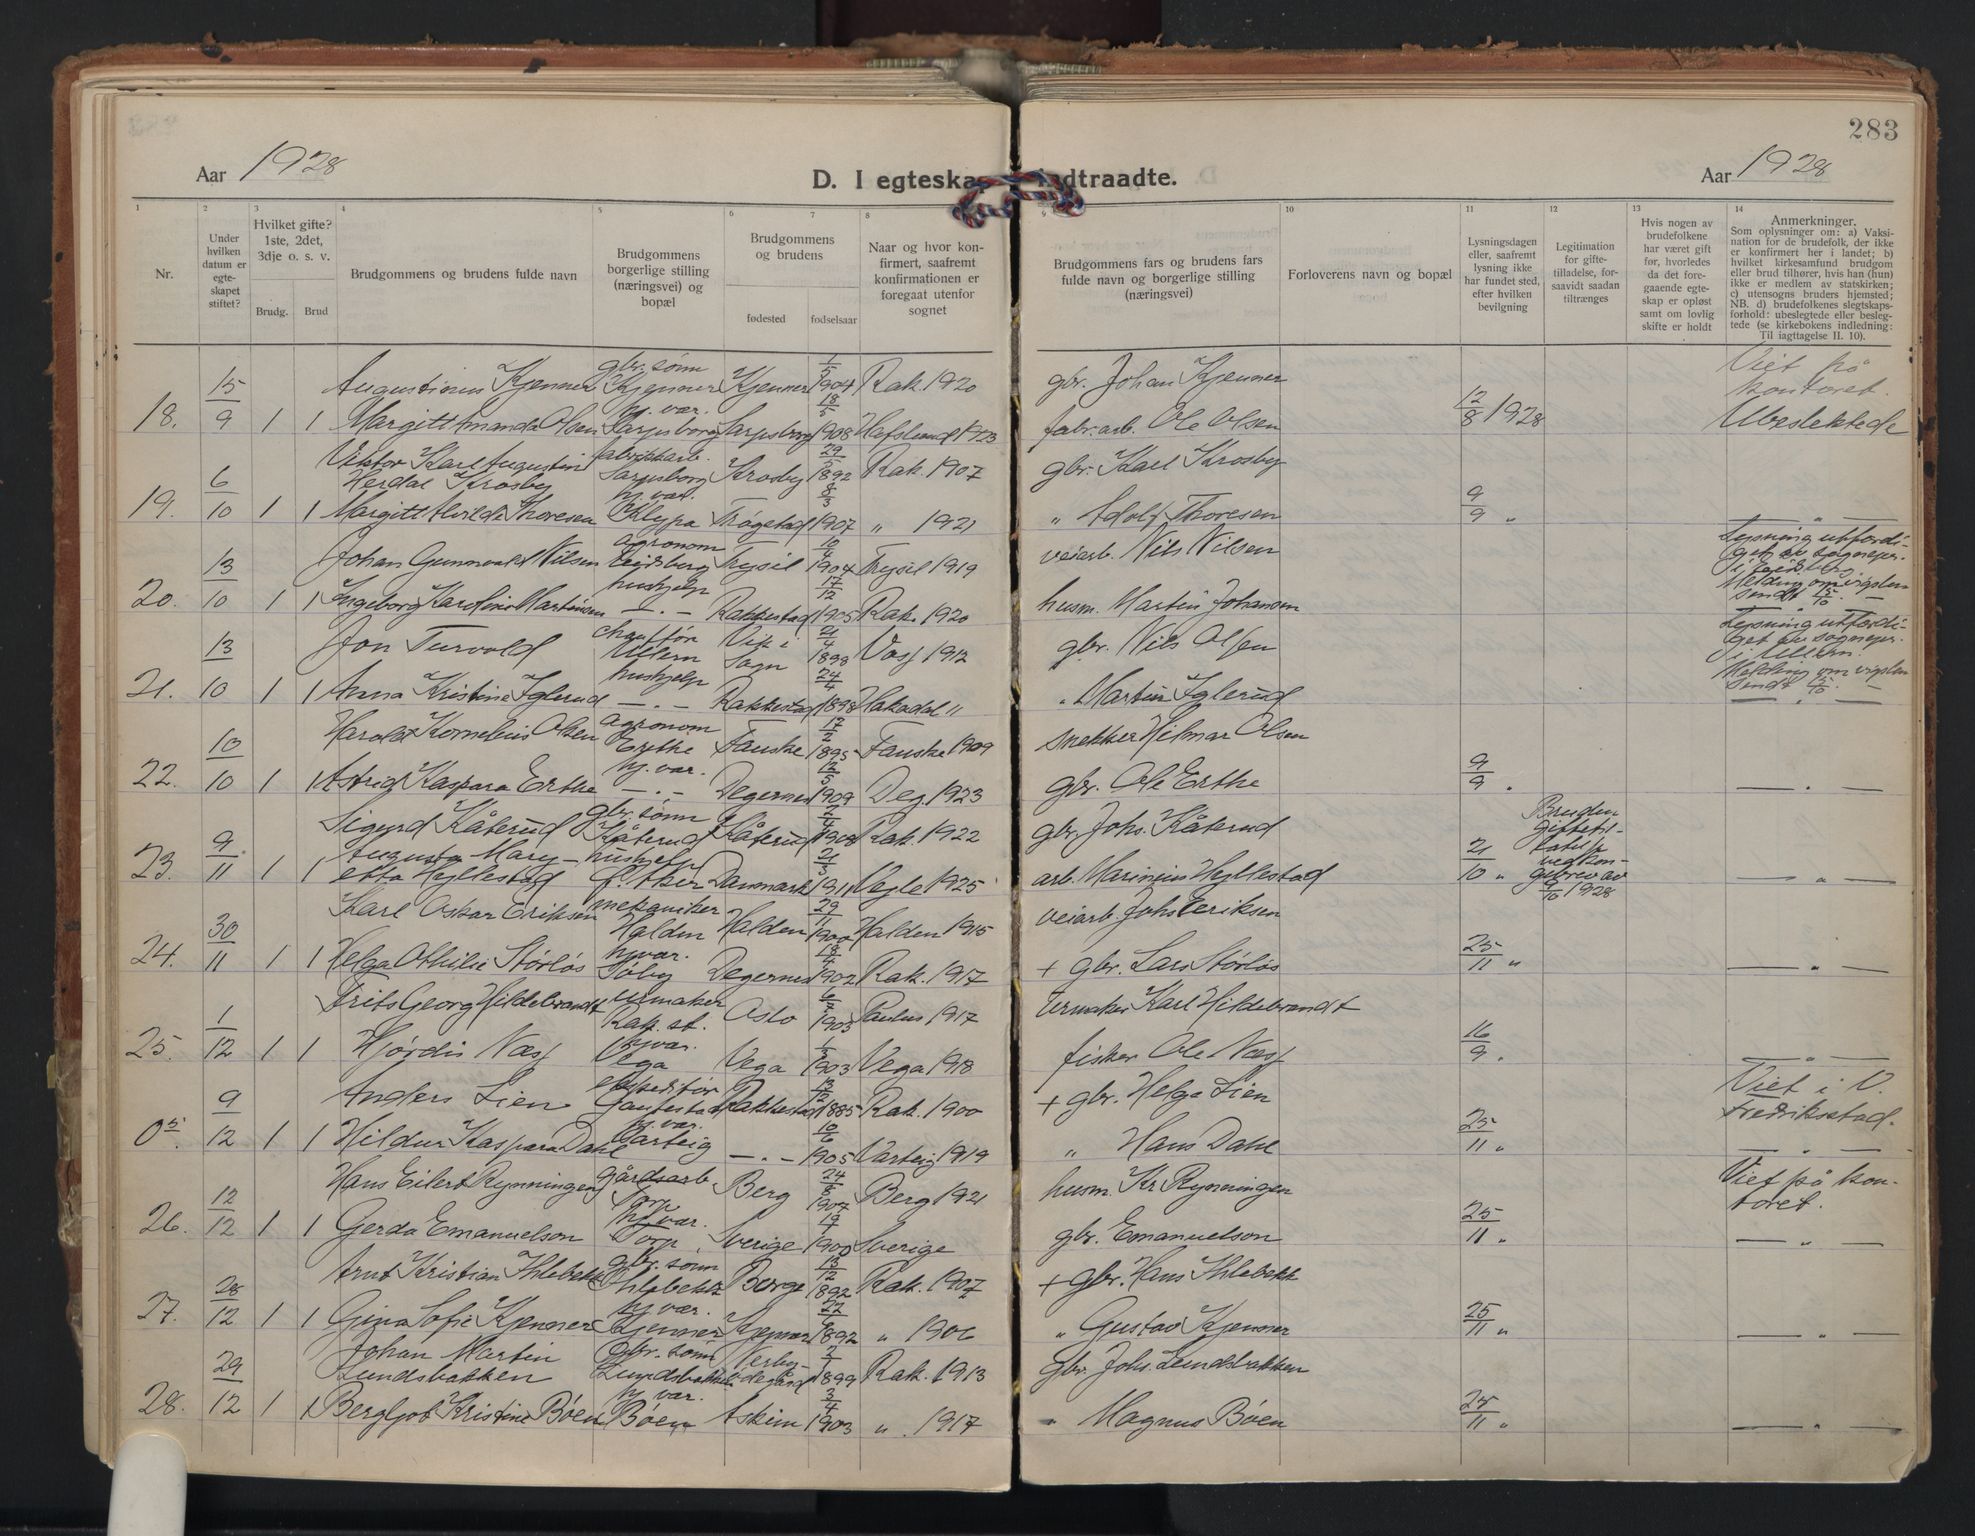 283
Aar 1928
D. I egteskap indtraadte.
Aar 1928
1 2 3 4 5 6 7 8 9 10 11 12 13 14
Nr.
Under hvilken datum er egteskapet stiftet?
Hvilket gifte? 1ste, 2det, 3dje o. s. v.
Brudg. Brud
Brudgommens og brudens fulde navn
Brudgommens borgerlige stilling (næringsvei) og bopæl
Brudgommens og brudens
fødested fødselsaar
Naar og hvor konfirmert, saafremt konfirmationen er foregaat utenfor sognet
Brudgommens fars og brudens fars fulde navn og borgerlige stilling (næringsvei)
Forloverens navn og bopæl
Lysningsdagen eller, saafremt lysning ikke har fundet sted, efter hvilken bevilgning
Legitimation for giftetilladelse, forsaavidt saadan tiltrænges
Hvis nogen av brudefolkene har været gift før, hvorledes da det foregaaende egteskap er opløst samt om lovlig skifte er holdt
Anmerkninger.
Som oplysninger om: a) Vaksination for de brudefolk, der ikke er konfirmert her i landet; b) hvilket kirkesamfund brudgom eller brud tilhører, hvis han (hun) ikke er medlem av statskirken; c) utensogns bruders hjemsted; NB. d) brudefolkenes slegtskapsforhold: ubeslegtede eller beslegtede (se kirkebokens indledning: Til iagttagelse II. 10).
15/9 Augustinus Kjenner gbr. sønn Kjenner Kjenner 1/5 1904 Rak. 1920 gbr. Johan Kjenner Viet på kontoret.
18. 1 1 Margitt Amanda Olsen hj. var. Sarpsborg Sarpsborg 18/5 1908 Hafslund 1923 fabr. arb. Ole Olsen 12/8 1928 Ubeslektede
6/10 Viktor Karl Augustin Herdal Krosby fabrikkarb. Sarpsborg Krosby 1892 Rak. 1907 gbr. Karl Krosby
19. 1 1 Margitt Alvilde Thoresen hj. var. Klypa Trøgstad 8/3 1907 " 1921 " Adolf Thoresen 9/9 " — " —
13/10 Johan Gunnvald Nilsen agronom Eidsberg Trysil 10/4 1904 Trysil 1919 veiarb. Nils Nilsen Lysning utferdiget av sognepr. i Eidsberg. Melding om vigslen sendt 15/10. —
20. 1 1 Ingeborg Karoline Martinsen hushjelp — . — Rakkestad 17/12 1905 Rak. 1920 husm. Martin Johansen — " —
13/10 Jon Turvold chauffør Ullern Vik i Sogn 1898 Voss 1912 gbr. Nils Olsen Lysning utferdiget av sognepr. i Ullern. Melding om vigslen sendt 15/10. —
21. 1 1 Anna Kristine Iglerud hushjelp — . — Rakkestad 24/4 1898 Hakadal " " Martin Iglerud — " —
10/10 Harald Kornelius Olsen agronom Erthe Fauske 17/2 1895 Fauske 1909 snekker Hilmar Olsen
22. 1 1 Astrid Kaspara Erthe hj. var. — . — Degernes 12/5 1909 Deg. 1923 gbr. Ole Erthe 9/9 " — " —
9/11 Sigurd Kåterud gbr. sønn Kåterud Kåterud 1908 Rak. 1922 gbr. Johs. Kåterud
23. 1 1 Augusta Maryetta Hyllestad hushjelp Danmark 21/3 1911 Vejle 1925 arb. Marinius Hyllestad 21/10 " — " —
30/11 Karl Oskar Eriksen mekaniker Halden Halden 29/1 1900 Halden 1915 veiarb. Johs Eriksen
24. 1 1 Helga Othilie Storløs hj. var. Degernes 1902 Rak. 1917 + gbr. Lars Storløs 25/11 " — " —
1/12 Frits Georg Hildebrandt urmaker Rak. st. Oslo 1903 Paulus 1917 Urmaker Karl Hildebrandt
25. 1 1 Hjørdis Næss hj. var. Vega Vega 1903 Vega 1918 fisker Ole Næss 16/9 " — " —
9/12 Anders Lien ekspeditør Rakkestad 1885 Rak. 1900 + gbr. Helge Lien Viet i V. Fredrikstad.
1 1 Hildur Kaspara Dahl hj. var. Varteig — . — 10/6 1905 Varteig 1919 " Hans Dahl 25/11 " — " —
12/12 Hans Eilert Rynningen gårdsarb. Torp Berg 1907 Berg 1921 husm. Kr Rynningen Viet på kontoret.
26. 1 1 Gerda Emanuelson hj. var. Torp Sverige 1900 Sverige gbr. Emanuelson 25/11 " — " —
28/12 Arnt Kristian Ihlebekk gbr. sønn Ihlebekk Berge 13/12 1892 Rak. 1907 + gbr. Hans Ihlebekk
27. 1 1 Gina Sofie Kjenner hj. var. Kjenner Kjenner 1892 " 1906 " Gustav Kjenner 25/11 " — " —
29/12 Johan Martin Lundsbakken gbr. sønn Lundsbakken 1899 Rak. 1913 gbr. Johs. Lundsbakken
28. 1 1 Bergljot Kristine Bøen hj. var. Bøen Askim 3/4 1903 " 1917 " Magnus Bøen 25/11 " — " —